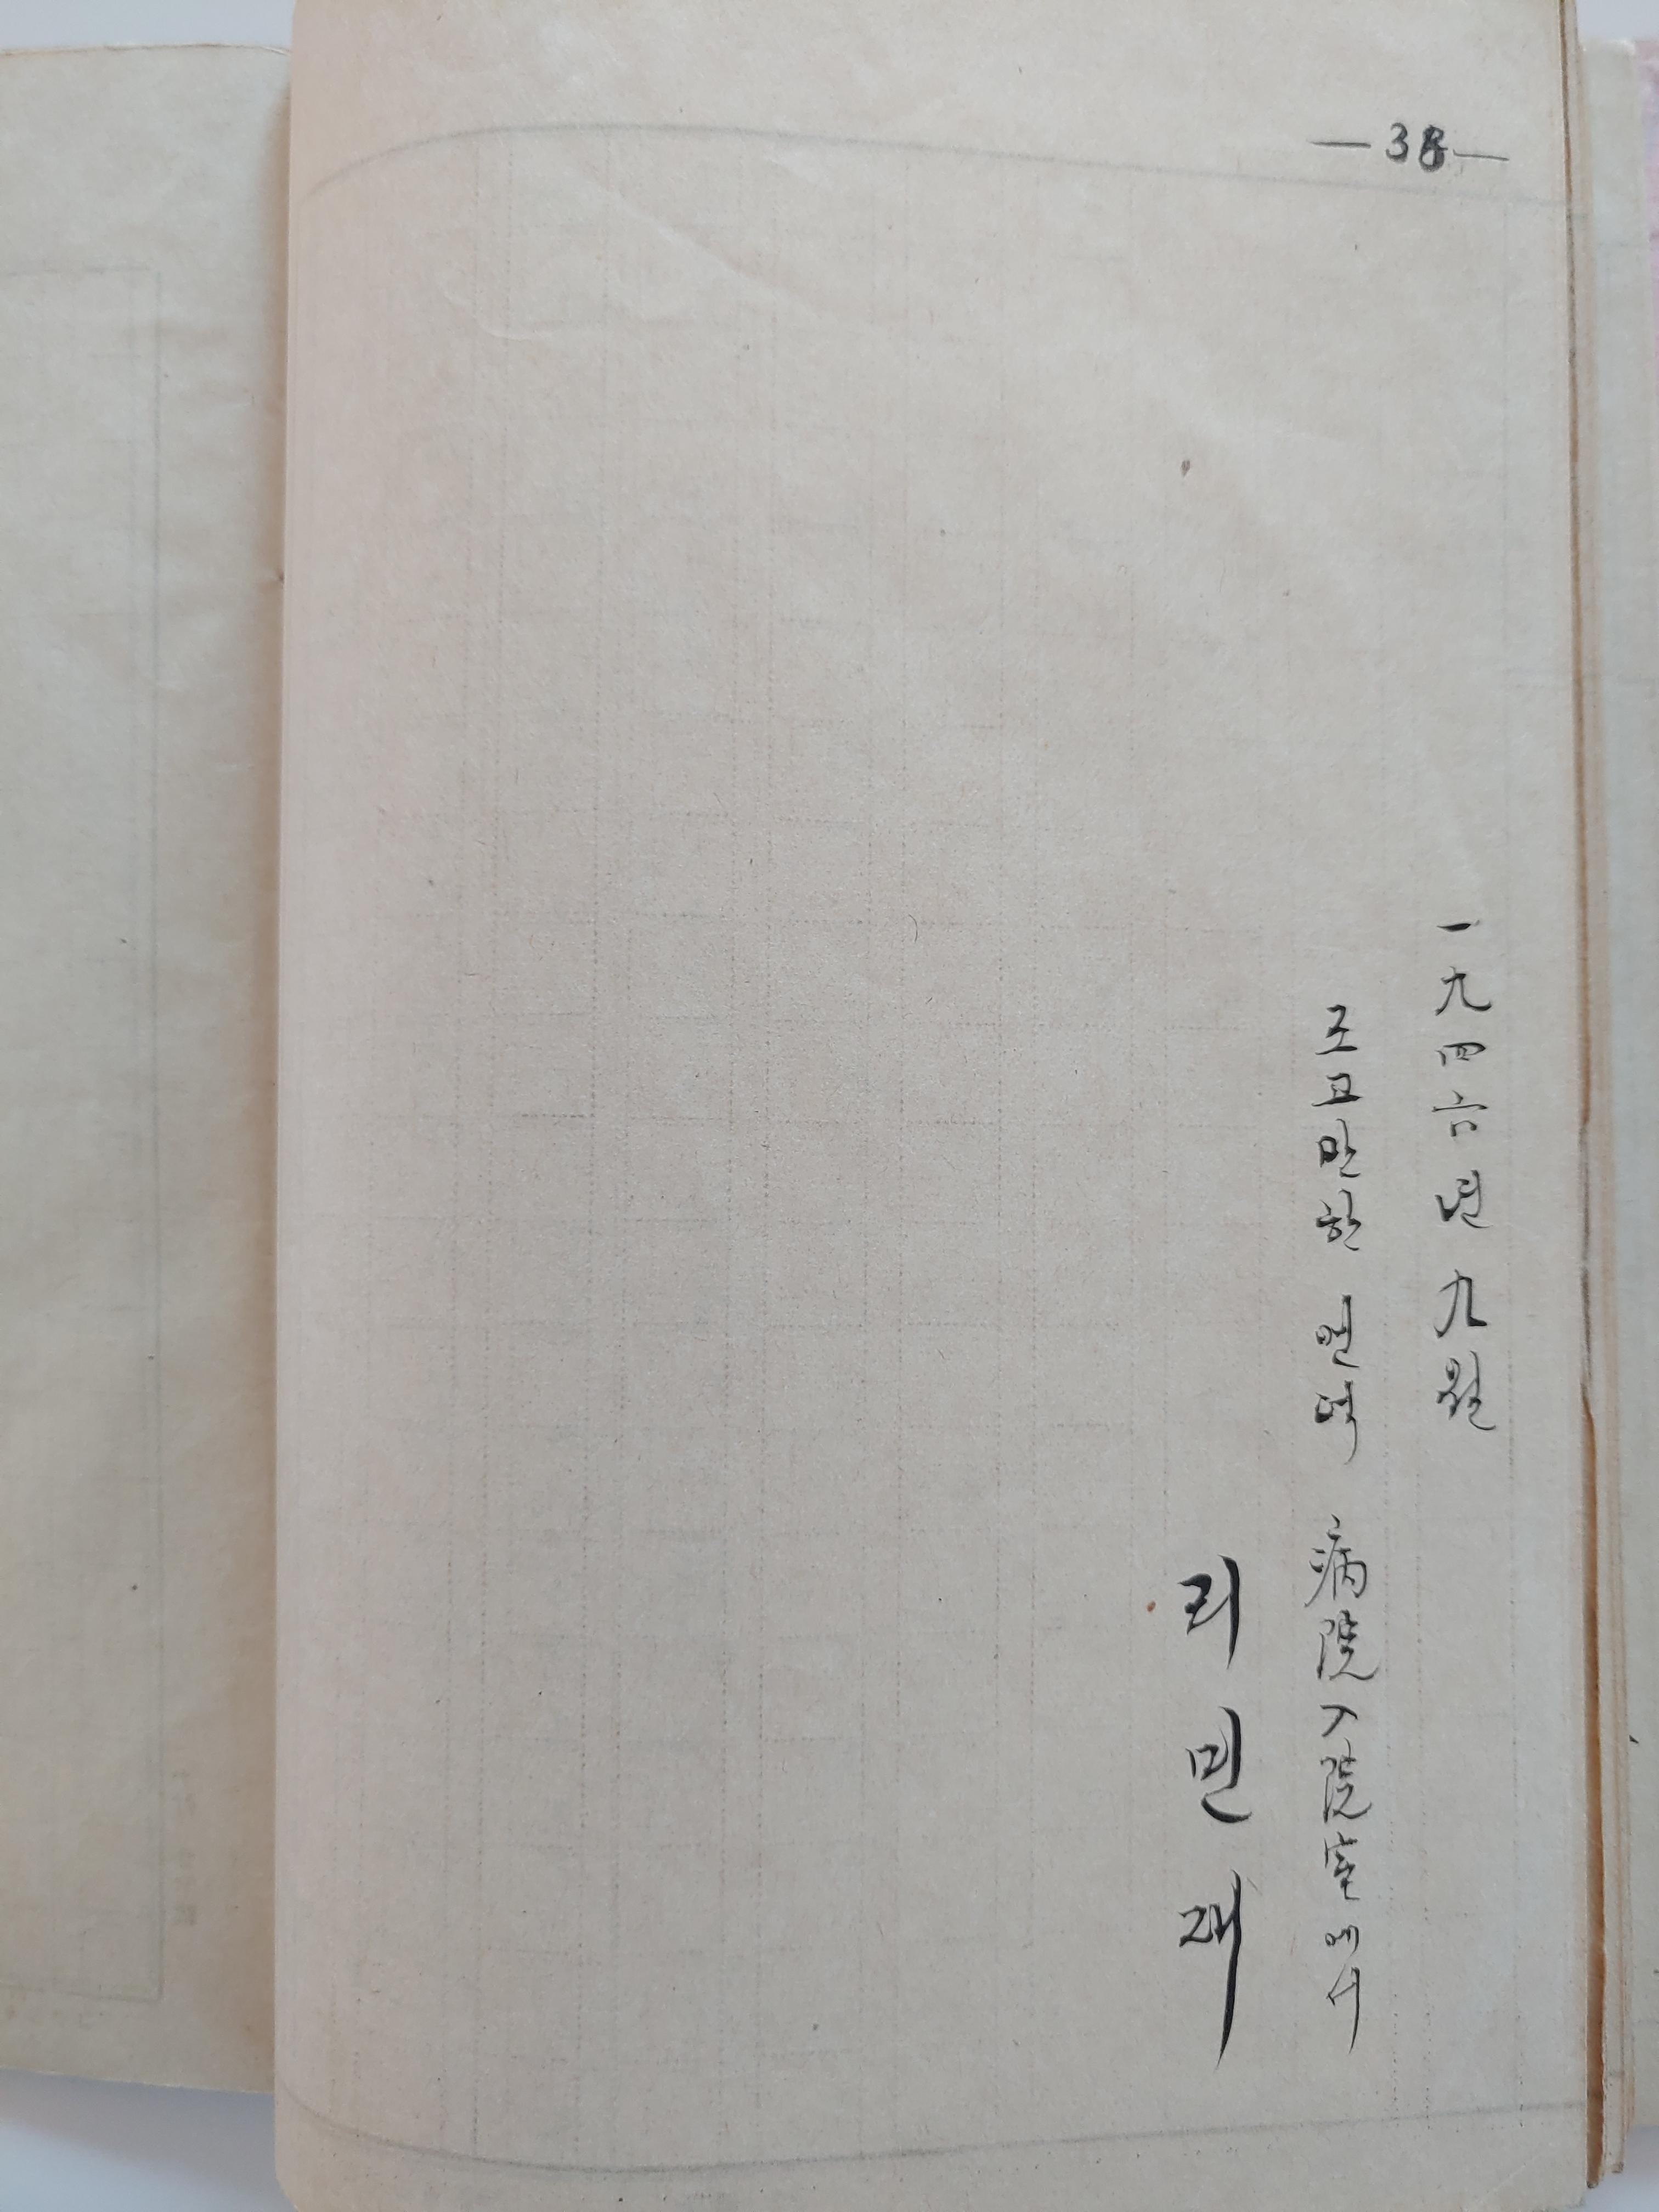 —38—
一九四六년 九월
조고만한 면역 病院入院室에서
리민재